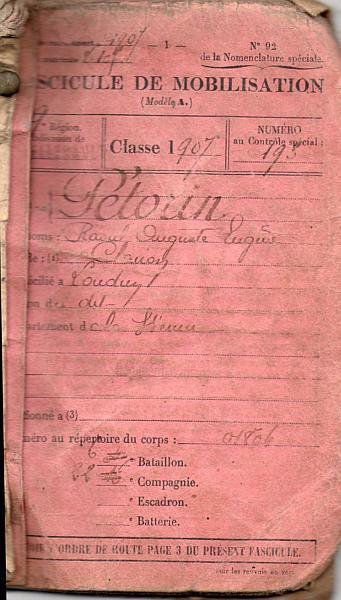 1907 — 1 — Nº 92
de la Nomenclature spéciale.
SCICULE DE MOBILISATION
(Modèle A.)
9 Région.
Classe 1907
NUMÉRO
au Contrôle spécial :
193
Pétorin
noms : Raoul Auguste Eugène
icilié à Loudun
on du dit
artement d e la Vienne
onné à (3)
néro au répertoire du corps : 01806
6 e Bataillon.
22 e Compagnie.
e Escadron.
e Batterie.
L'ORDRE DE ROUTE PAGE 3 DU PRÉSENT FASCICULE.
Voir les renvois au verso.